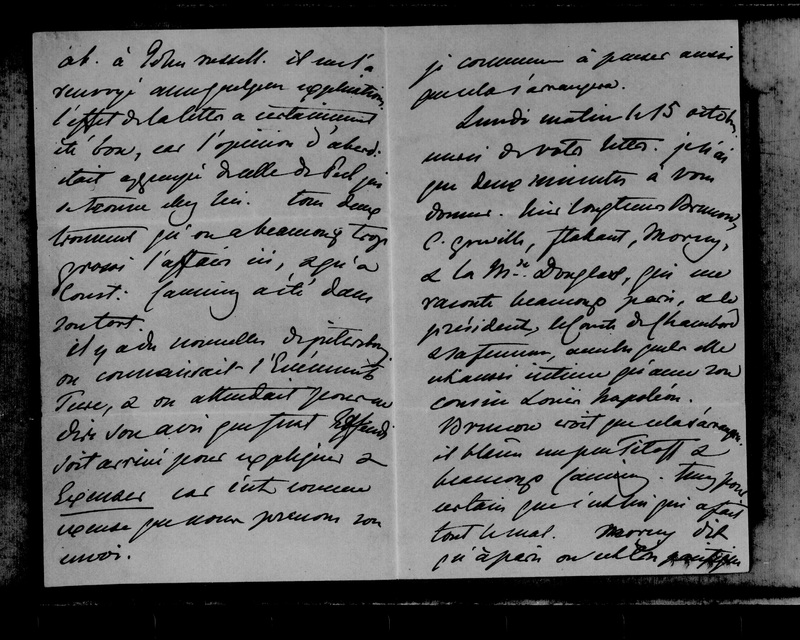 ab. à John russell. il me l'a
renvoyé avec quelques explications
l'effet de la lettre a certainement
été bon, car l'opinion d'aberd:
était appuyée de celle de Peel qui
se trouve chez lui. tous deux
trouvent qu'on a beaucoup trop
grossi l'affaire ici, & qu'à
Const: Canning a été dans
son tort.
il y a des nouvelles de petersbourg
on connaissait l'Evénement
Turc, & on attendait pour en
dire son avis que Fuad Effendi
soit arrivé pour expliquer &
Excuser car c'est comme
excuse que nous prenons son
envoi.
je commence à penser aussi
que cela s'arrangera.
Lundi matin le 15 octobre
merci de votre lettre. je n'ai
que deux minutes à vous
donner. hier longtems Brunnow,
C. greville, flahaut, Morny,
& la Mse Douglas, qui me
raconte beaucoup paris, & le
président, le Comte de Chambord
& sa femme, avec lesquels elle
est aussi intime qu'avec son
cousin Louis Napoléon.
Brunnow croit que cela s'arrangera.
il blâme un peu Titoff &
beaucoup Canning. tenez pour
certain que c'est lui qui a fait
tout le mal. morny dit
qu'à paris on est très